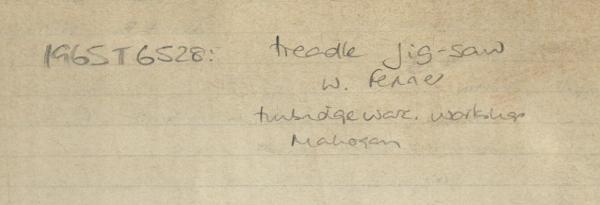 1965T6528: treadle jig-saw
W. Fenner
tunbridge ware. workshop
Mahogany